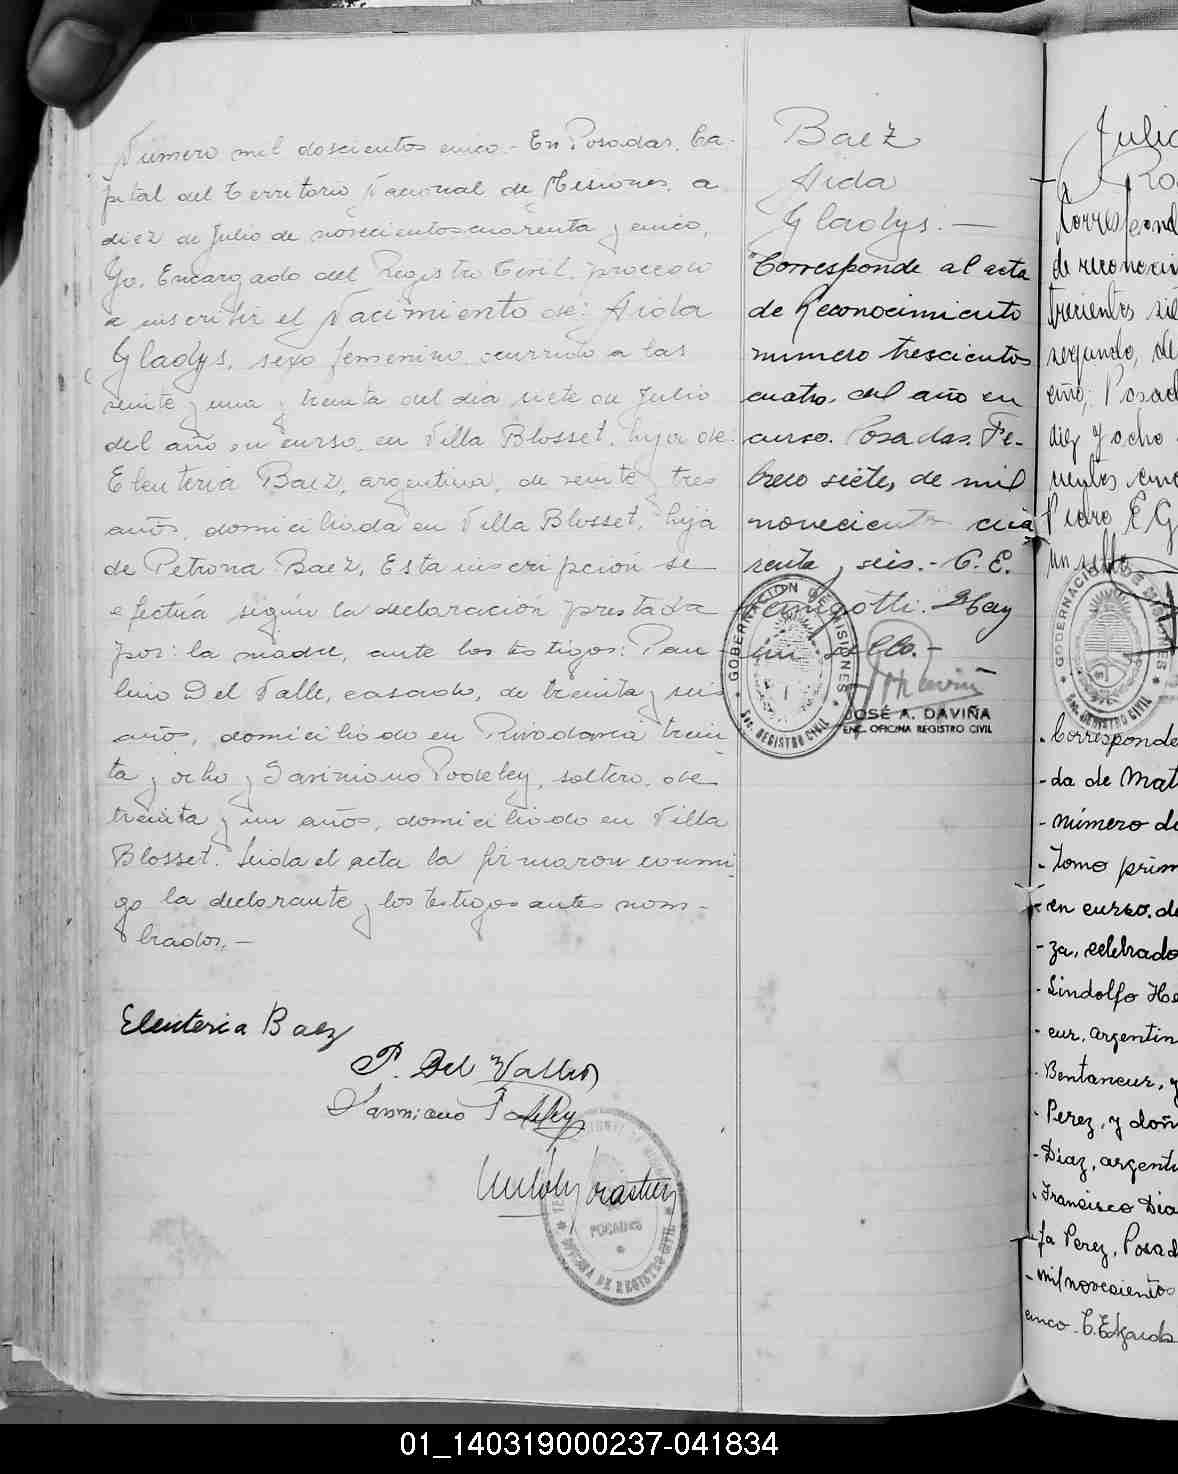 Número mil doscientos cinco.- En Posadas, Ca-
pital del Territorio Nacional de Misiones, a
diez de Julio de novecientos cuarenta y cinco,
Yo, Encargado del Registro Civil, procedo
a inscribir el Nacimiento de: Aida
Gladys, sexo femenino, ocurrido a las
veinte y una y treinta del día siete de Julio
del año en curso, en Villa Blosset, hija de:
Eleuteria Baez, argentina, de veinte y tres
años, domiciliada en Villa Blosset, hija
de Petrona Baez. Esta inscripción se
efectúa según la declaración prestada
por: la madre, ante los testigos: Pau-
lino Del Valle, casado, de treinta y seis
años, domiciliado en Rivadavia trein-
ta y ocho y Saviniano Podeley, soltero, de
treinta y un años, domiciliado en Villa
Blosset. Leida el acta la firmaron conmi-
go la declarante y los testigos antes nom-
brados.—
Eleuteria Baez
P. Del Valle
Saviniano Podeley
POSADAS
OFICINA DE REGISTRO CIVIL
Baez
Aida
Gladys.—
"Corresponde al acta
de Reconocimiento
numero trescientos
cuatro, del año en
curso. Posadas. Fe-
brero siete, de mil
novecientos cua
renta y seis.- C. E.
Hay
un sello.-
GOBERNACION DE MISIONES
Enc. REGISTRO CIVIL
JOSÉ A. DAVIÑA
ENC. OFICINA REGISTRO CIVIL
Julio
Correspond
de reconocim
trecientos
segundo, de
año; Posad
diez y ocho
cientos
Pedro E. G
un sello
GOBERNACION DE MISIONES
Enc. REGISTRO CIVIL
Corresponde
-da de Mat
-número d
-Tomo prim
-en curso, d
-za, celebrado
-Lindolfo He
-eur, argentin
-Bentaneur, y
-Perez, y doñ
-Diaz, argent
-Francisco Dia
-fa Perez, Posad
-mil novecientos
cinco. C. E.
01_140319000237-041834